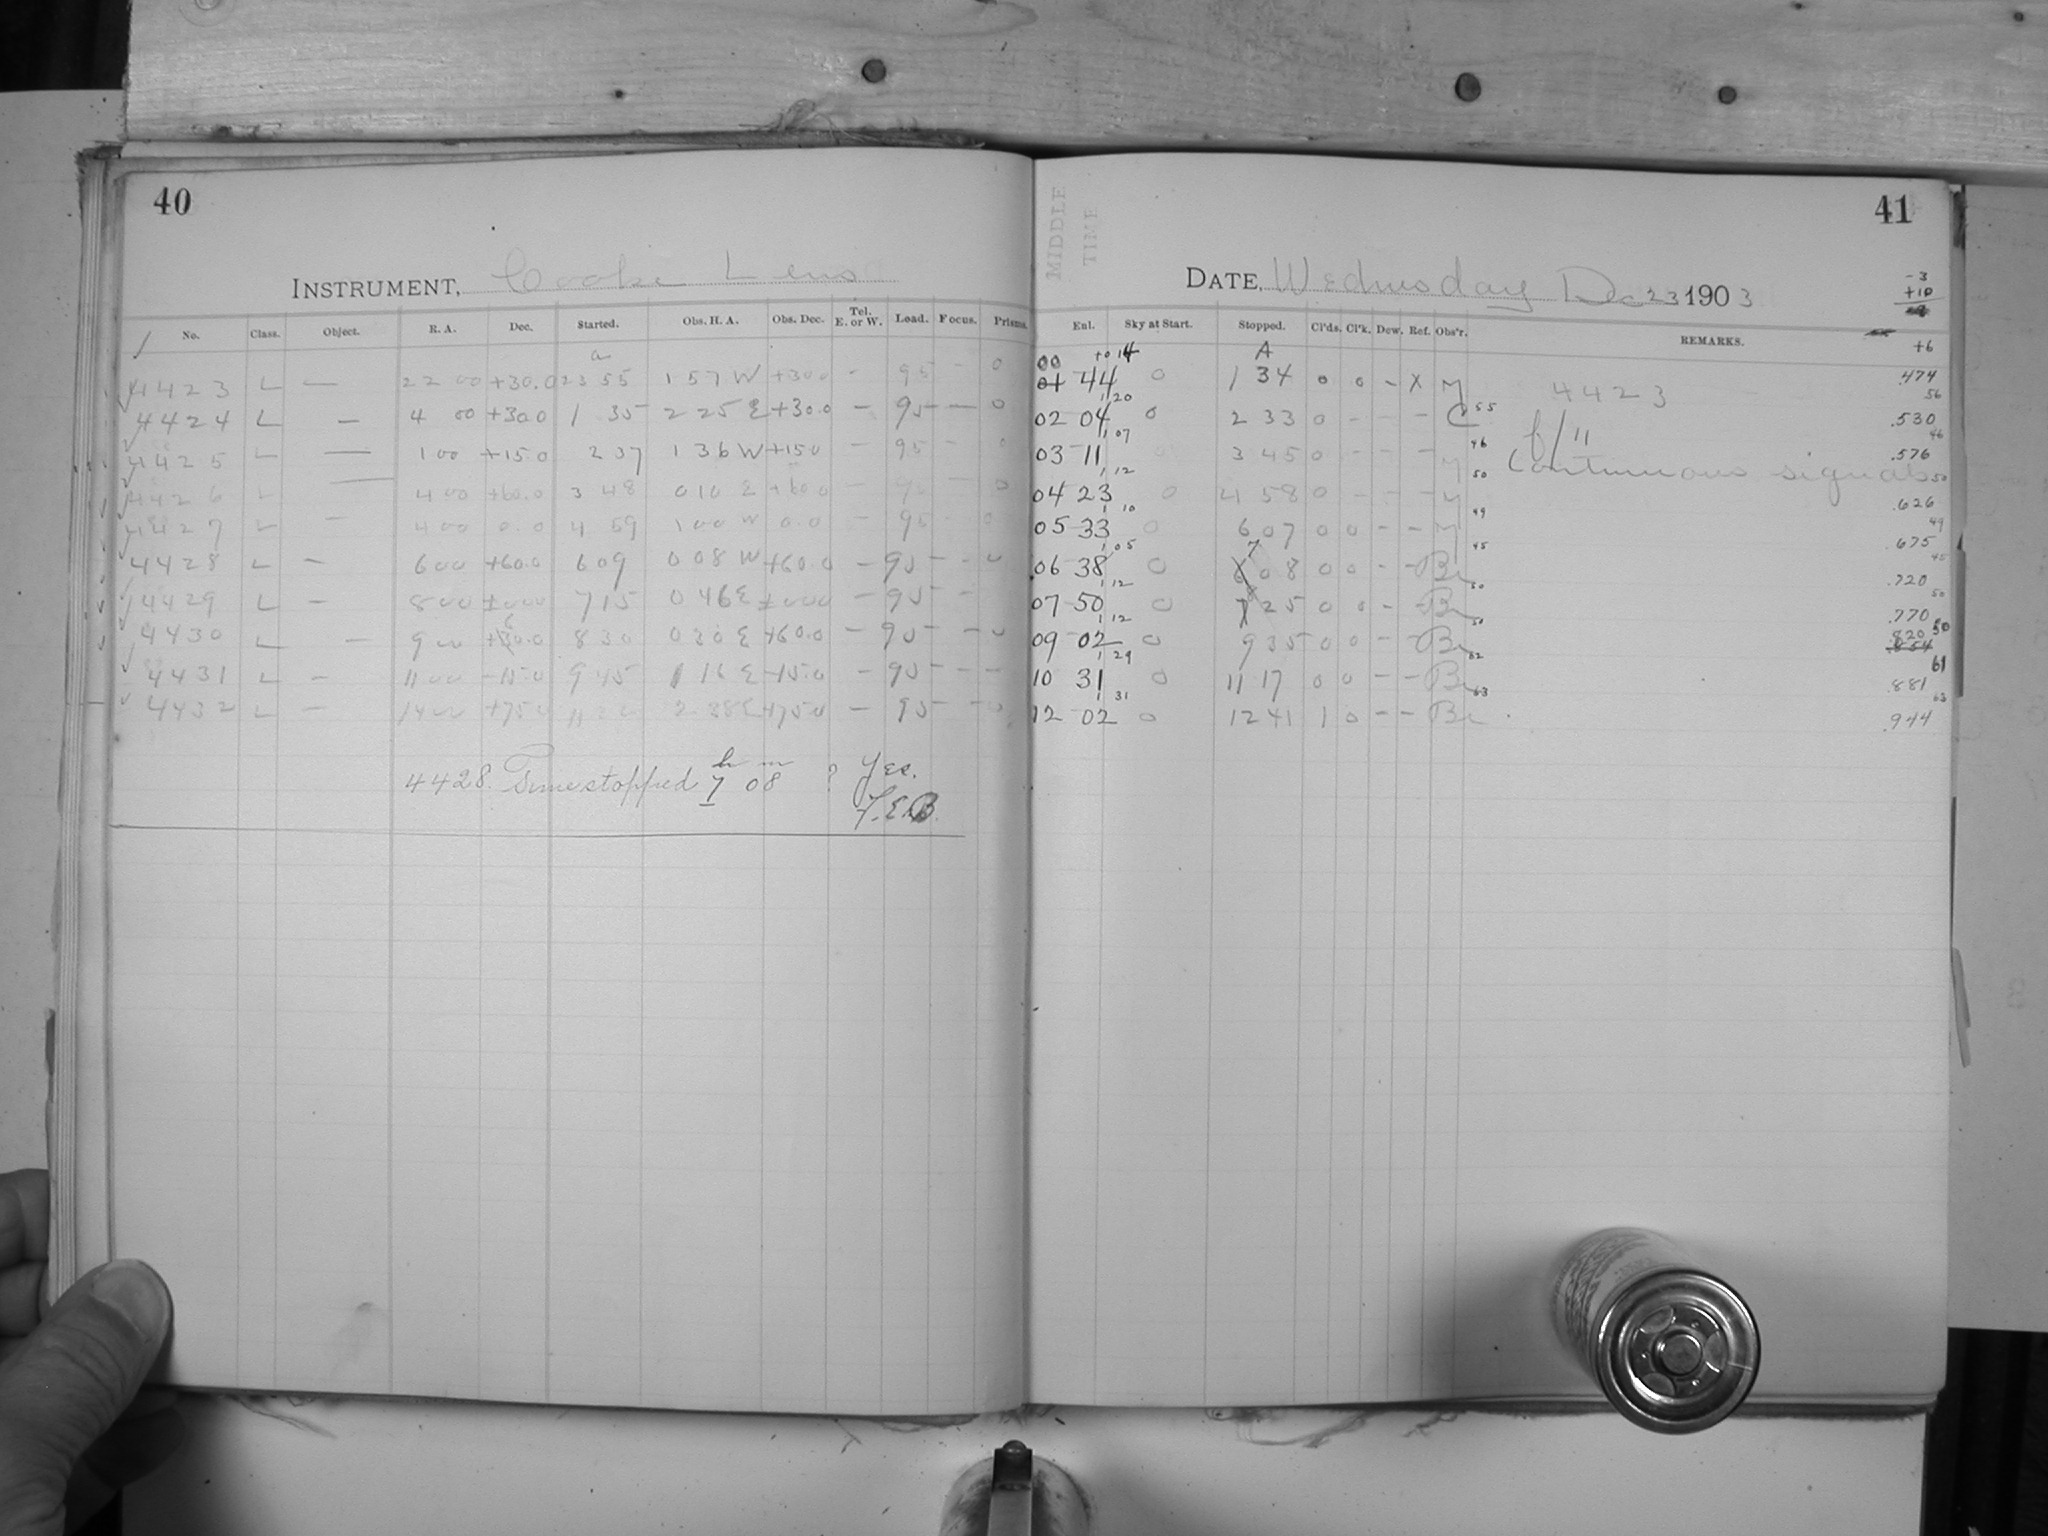 40
INSTRUMENT, Cooke Lens
No. Class. Object. R. A. Dec. Started. Obs. H. A. Obs. Dec. Tel. E. or W. Load. Focus. Prisms.
a
4423 L — 22 00 +30.0 23 55 1 57 W +30.0 - 95 - 0
4424 L — 4 00 +30.0 1 35 2 25 E +30.0 - 95 - 0
4425 L — 1 00 +15.0 2 37 1 36 W +15.0 - 95 - 0
4426 L — 4 00 +60.0 3 48 0 10 E +60.0 - 95 - 0
4427 L — 4 00 0.0 4 59 1 00 W 0.0 - 95 - 0
4428 L — 6 00 +60.0 6 09 0 08 W +60.0 - 95 - - 0
4429 L — 8 00 ±000 7 15 0 46 E ±000 - 95 - -
4430 L — 9 00 +60.0 8 30 0 30 E +60.0 - 95 - - 0
4431 L — 11 00 -15.0 9 45 1 16 E -15.0 - 95 - - -
4432 L — 14 00 +75.0 2 38 E +75.0 - 95 - - 0
4428. Time stopped 7 h 08 m ? Yes.
F.E.B.
41
MIDDLE
TIME
DATE, Wednesday Dec 23 1903
-3
+10
+6
Enl. Sky at Start. Stopped. Cl'ds. Cl'k. Dew. Ref. Obs'r. REMARKS.
00 +0 14 A
01 44 0 1 34 0 0 - X M 4423 .474
1 20 56
02 04 0 2 33 0 - - - C 55 f/11 .530
1 07 46 46
03 11 3 45 0 - - - M Continuous signals .576
1 12 50 50
04 23 0 4 58 0 - - - M .626
1 10 49 49
05 33 0 6 07 0 0 - - M .675
1 05 45 45
06 38 0 7 08 0 0 - - Br .720
1 12 50 50
07 50 0 8 25 0 0 - - Br .770
1 12 50 50
09 02 0 9 35 0 0 - - Br .820 .854
1 29 62 61
10 31 0 11 17 0 0 - - Br .881
1 31 63 63
12 02 0 12 41 1 0 - - Br .944